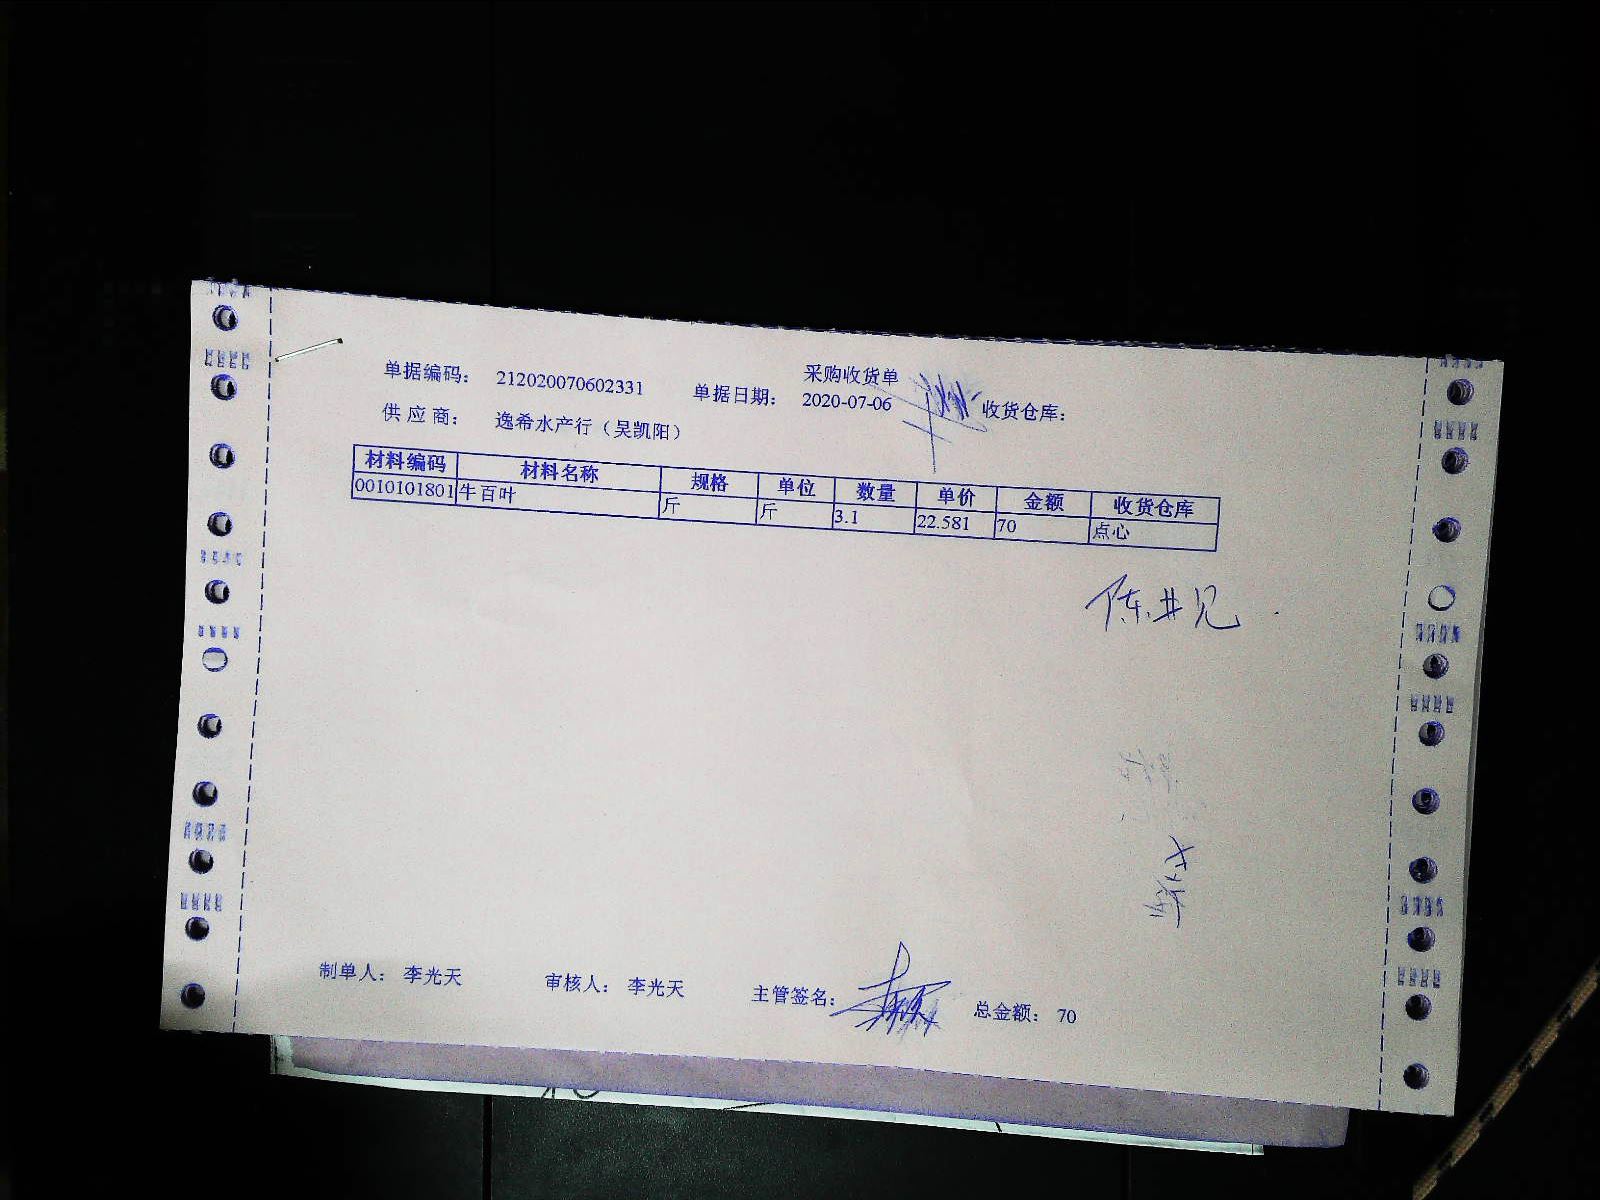 采购收货单
单据编码： 212020070602331 单据日期： 2020-07-06 收货仓库：
供应商： 逸希水产行（吴凯阳）
材料编码 材料名称 规格 单位 数量 单价 金额 收货仓库
0010101801 牛百叶 斤 斤 3.1 22.581 70 点心
制单人： 李光天 审核人： 李光天 主管签名： 总金额： 70